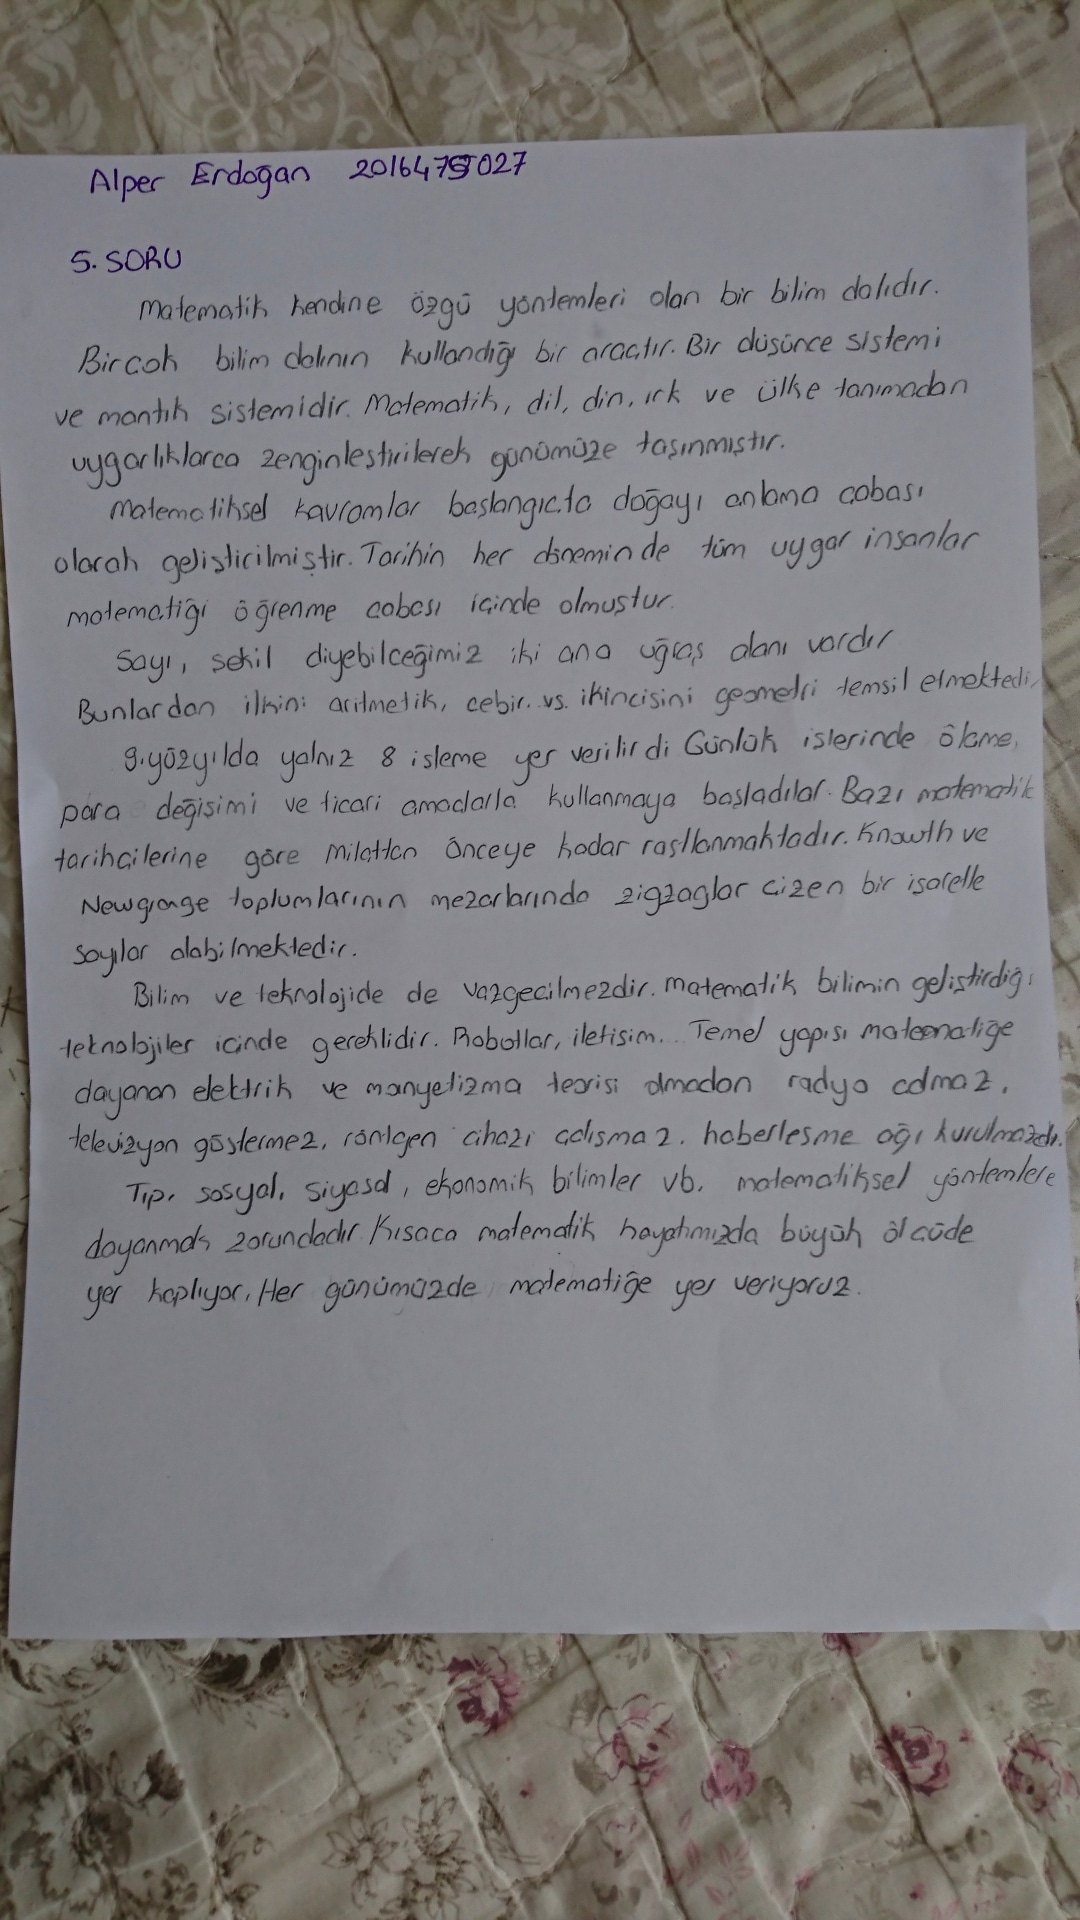 Alper Erdoğan 2016475027
5. SORU
Matematik kendine özgü yöntemleri olan bir bilim dalıdır.
Bircok bilim dalının kullandığı bir aractır. Bir düsünce sistemi
ve mantık sistemidir. Matematik, dil, din, ırk ve ülke tanımadan
uygarlıklarca zenginlestirilerek günümüze taşınmıştır.
Matematiksel kavramlar baslangıcta doğayı anlama cabası
olarak gelişticilmiştir. Tarihin her döneminde tüm uygar insanlar
matematiği öğrenme cabası içinde olmuştur.
Sayı, sekil diyebilceğimiz iki ana uğraş alanı vardır
Bunlardan ilkini aritmetik, cebir.. vs. ikincisini geometri temsil etmektedir
9.yüzyılda yalnız 8 isleme yer verilirdi Günlük islerinde ölcme,
para değişimi ve ticari amaclarla kullanmaya başladılar. Bazı matematik
tarihcilerine göre milattan önceye kadar rastlanmaktadır. Knowth ve
Newgrange toplumlarının mezarlarında zigzaglar cizen bir isarelle
sayılar alabilmektedir.
Bilim ve teknolojide de vazgecilmezdir. matematik bilimin geliştirdiği
teknolojiler icinde gereklidir. Robotlar, iletisim... Temel yapısı matematiğe
dayanan elektrik ve manyetizma teorisi olmadan radyo calmaz,
televizyon göstermez, röntgen cihazı calısmaz. haberlesme ağı kurulmazdı.
Tıp, sosyal, siyasal, ekonomik bilimler vb. matematiksel yöntemlere
dayanmak zorundadır Kısaca matematik hayatımızda büyük ölcüde
yer kaplıyor, Her günümüzde matematiğe yer veriyoruz.